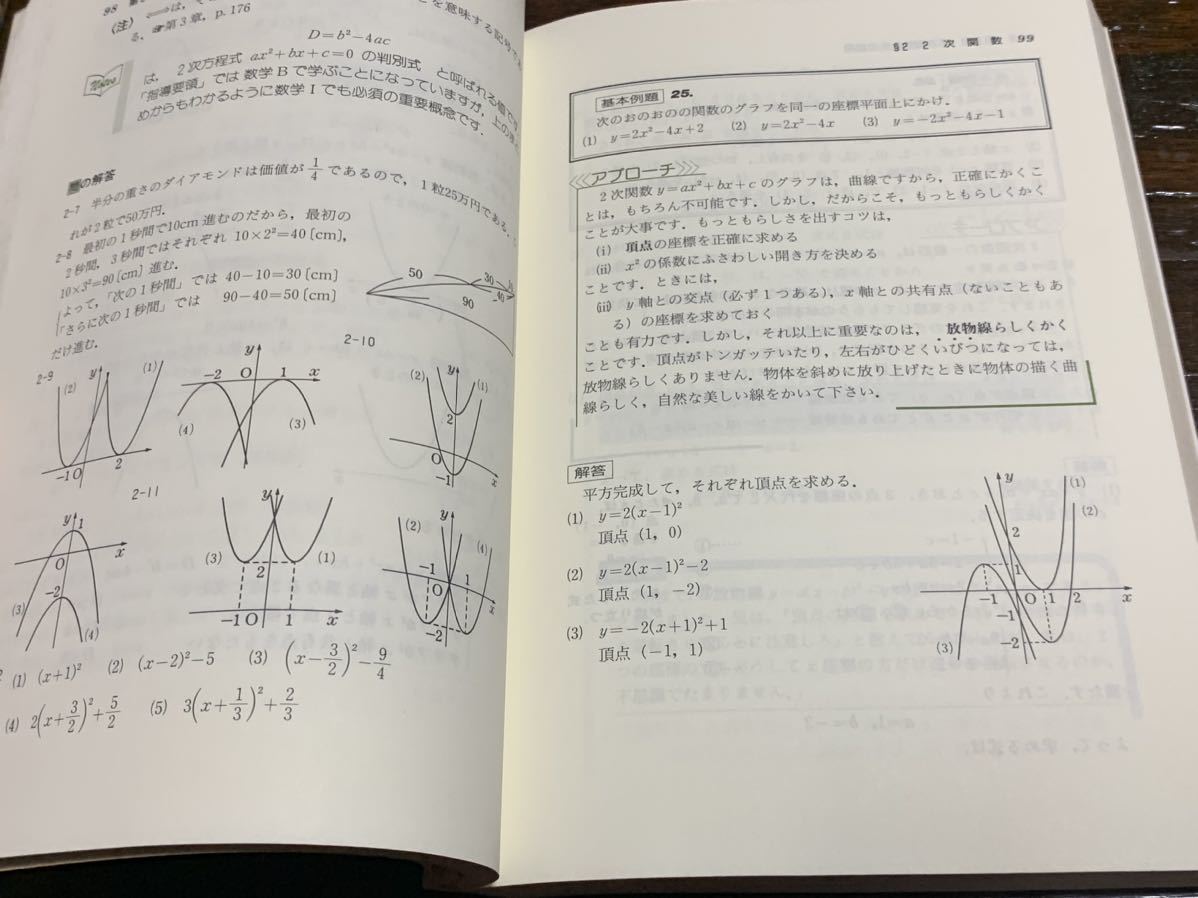 98
(注)
る、☞第3章, p.176
を意味する記号で
D=b²−4ac
Notes
は, 2次方程式 ax²+bx+c=0 の判別式 と呼ばれる値で
「指導要領」では数学Bで学ぶことになっていますが, 上の
めからもわかるように数学Ⅰでも必須の重要概念です.
の解答
2-7 半分の重さのダイアモンドは価値が 1/4 であるので, 1粒25万円である.
れが2粒で50万円.
2-8 最初の1秒間で10cm 進むのだから, 最初の
2秒間, 3秒間ではそれぞれ 10×2²=40 [cm],
10×3²=90 [cm] 進む.
よって,「次の1秒間」では 40−10=30 [cm]
「さらに次の1秒間」では 90−40=50 [cm]
だけ進む.
50 30
40
90
2-9
(2) y (1)
−1 O 2
−2 y O 1 x
(4) (3)
2-10
(2) y (1)
2
O x
−1
2-11
y 1
O x
−2
(3) (4)
y
(3) (1)
2
−1 O 1 x
(2) y (4)
−1 O 1 x
−2
(1) (x+1)² (2) (x−2)²−5 (3) (x−3/2)²−9/4
(4) 2(x+3/2)²+5/2 (5) 3(x+1/3)²+2/3
§2 2次関数 99
基本例題 25.
次のおのおのの関数のグラフを同一の座標平面上にかけ.
(1) y=2x²−4x+2 (2) y=2x²−4x (3) y=−2x²−4x−1
アプローチ
2次関数 y=ax²+bx+c のグラフは, 曲線ですから, 正確にかくこ
とは, もちろん不可能です. しかし, だからこそ, もっともらしくかく
ことが大事です. もっともらしさを出すコツは,
(ⅰ) 頂点の座標を正確に求める
(ⅱ) x² の係数にふさわしい開き方を決める
ことです. ときには,
(ⅲ) y 軸との交点 (必ず1つある), x 軸との共有点 (ないこともあ
る) の座標を求めておく
ことも有力です. しかし, それ以上に重要なのは, 放物線らしくかく
ことです. 頂点がトンガッテいたり, 左右がひどくいびつになっては,
放物線らしくありません. 物体を斜めに放り上げたときに物体の描く曲
線らしく, 自然な美しい線をかいて下さい.
解答
平方完成して, それぞれ頂点を求める.
(1) y=2(x−1)²
頂点 (1, 0)
(2) y=2(x−1)²−2
頂点 (1, −2)
(3) y=−2(x+1)²+1
頂点 (−1, 1)
y (1)
(2)
2
1
−1 O 1 2 x
−1
−2
(3)